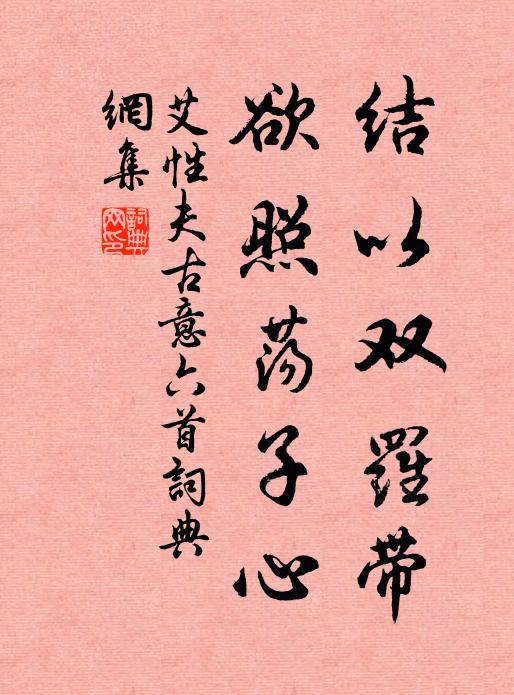 结以双羅带
欲照荡子心
艾性夫古意六首詞典
網集
詞典
网印